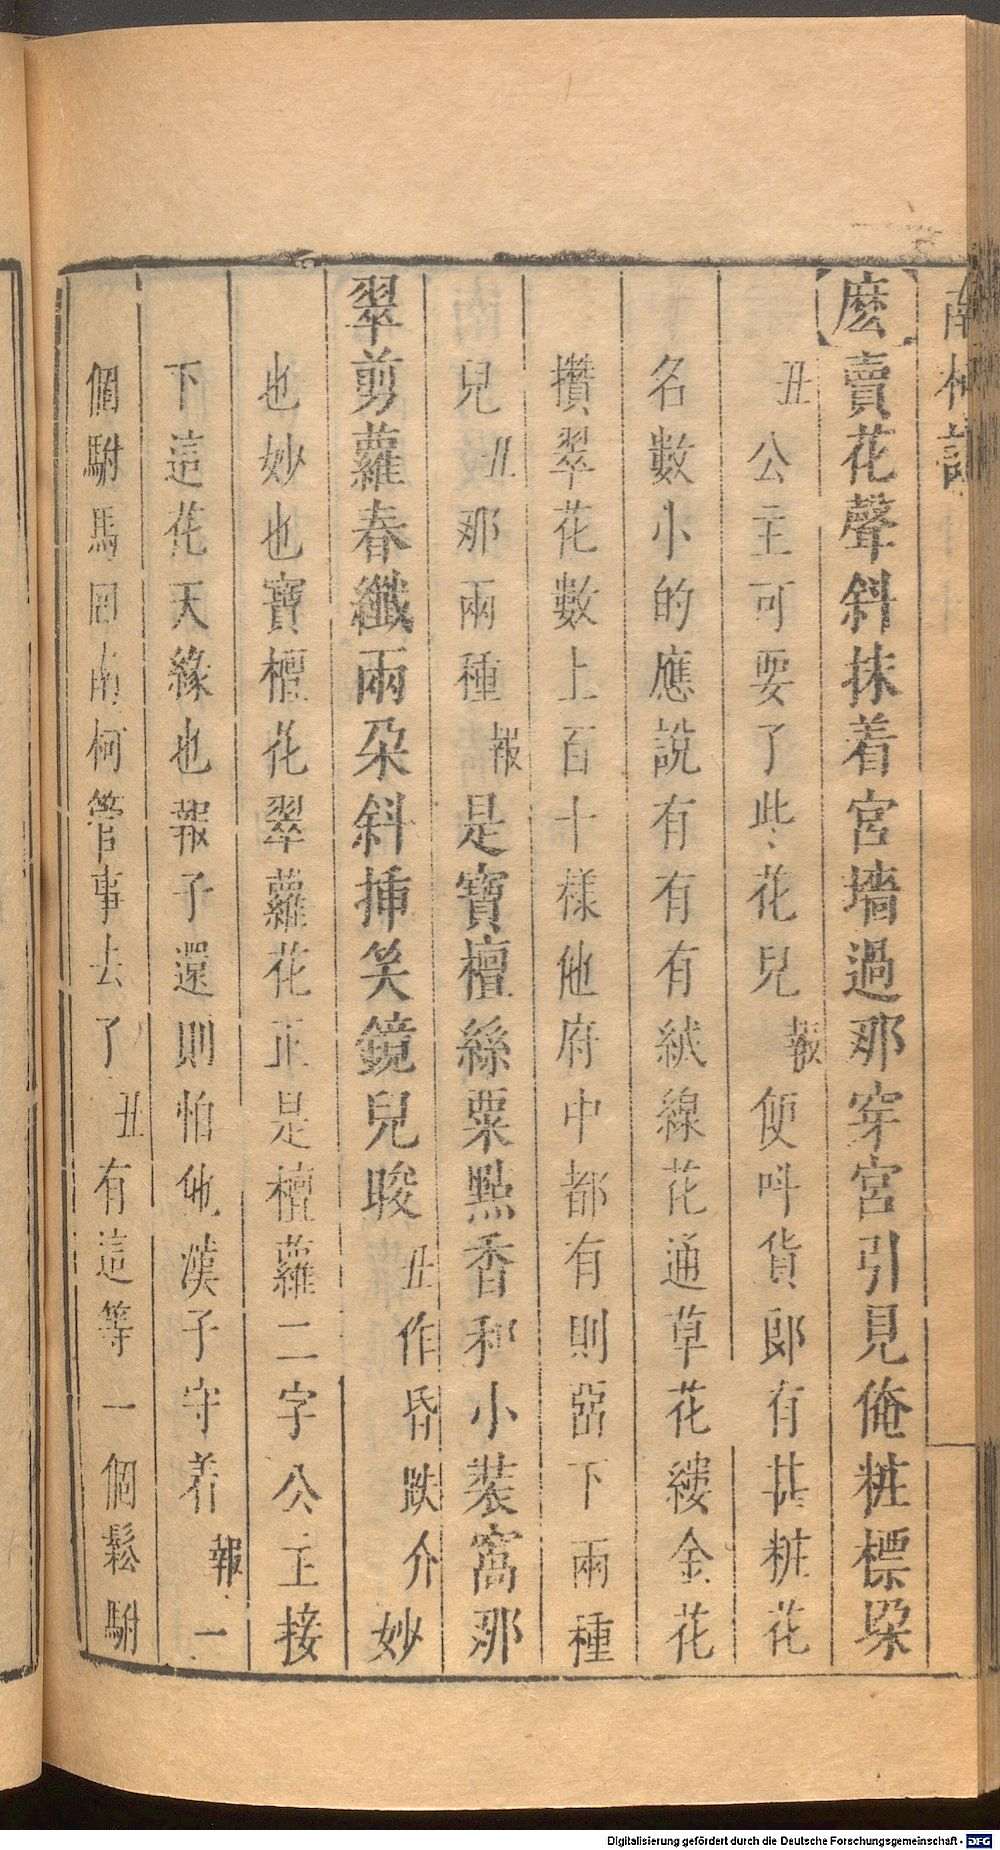 南柯記
麽賣花聲斜抹着宮墻過那穿宮引見俺粧標垜
丑公主可要了此花兒報便呌貨郎有甚粧花
名數小的應說有有有絨線花通草花縷金花
攢翠花數上百十樣他府中都有則啚下兩種
兒丑那兩種報是寶檀絲粟點香和小裝窩那
翠剪蘿春纖兩朶斜揷笑鏡兒睃丑作昏跌介妙
也妙也寶檀花翠蘿花正是檀蘿二字公主接
下這花天緣也報子還則怕他漢子守着報一
個駙馬囘南柯管事去了丑有這等一個鬆駙
Digitalisierung gefördert durch die Deutsche Forschungsgemeinschaft - DFG